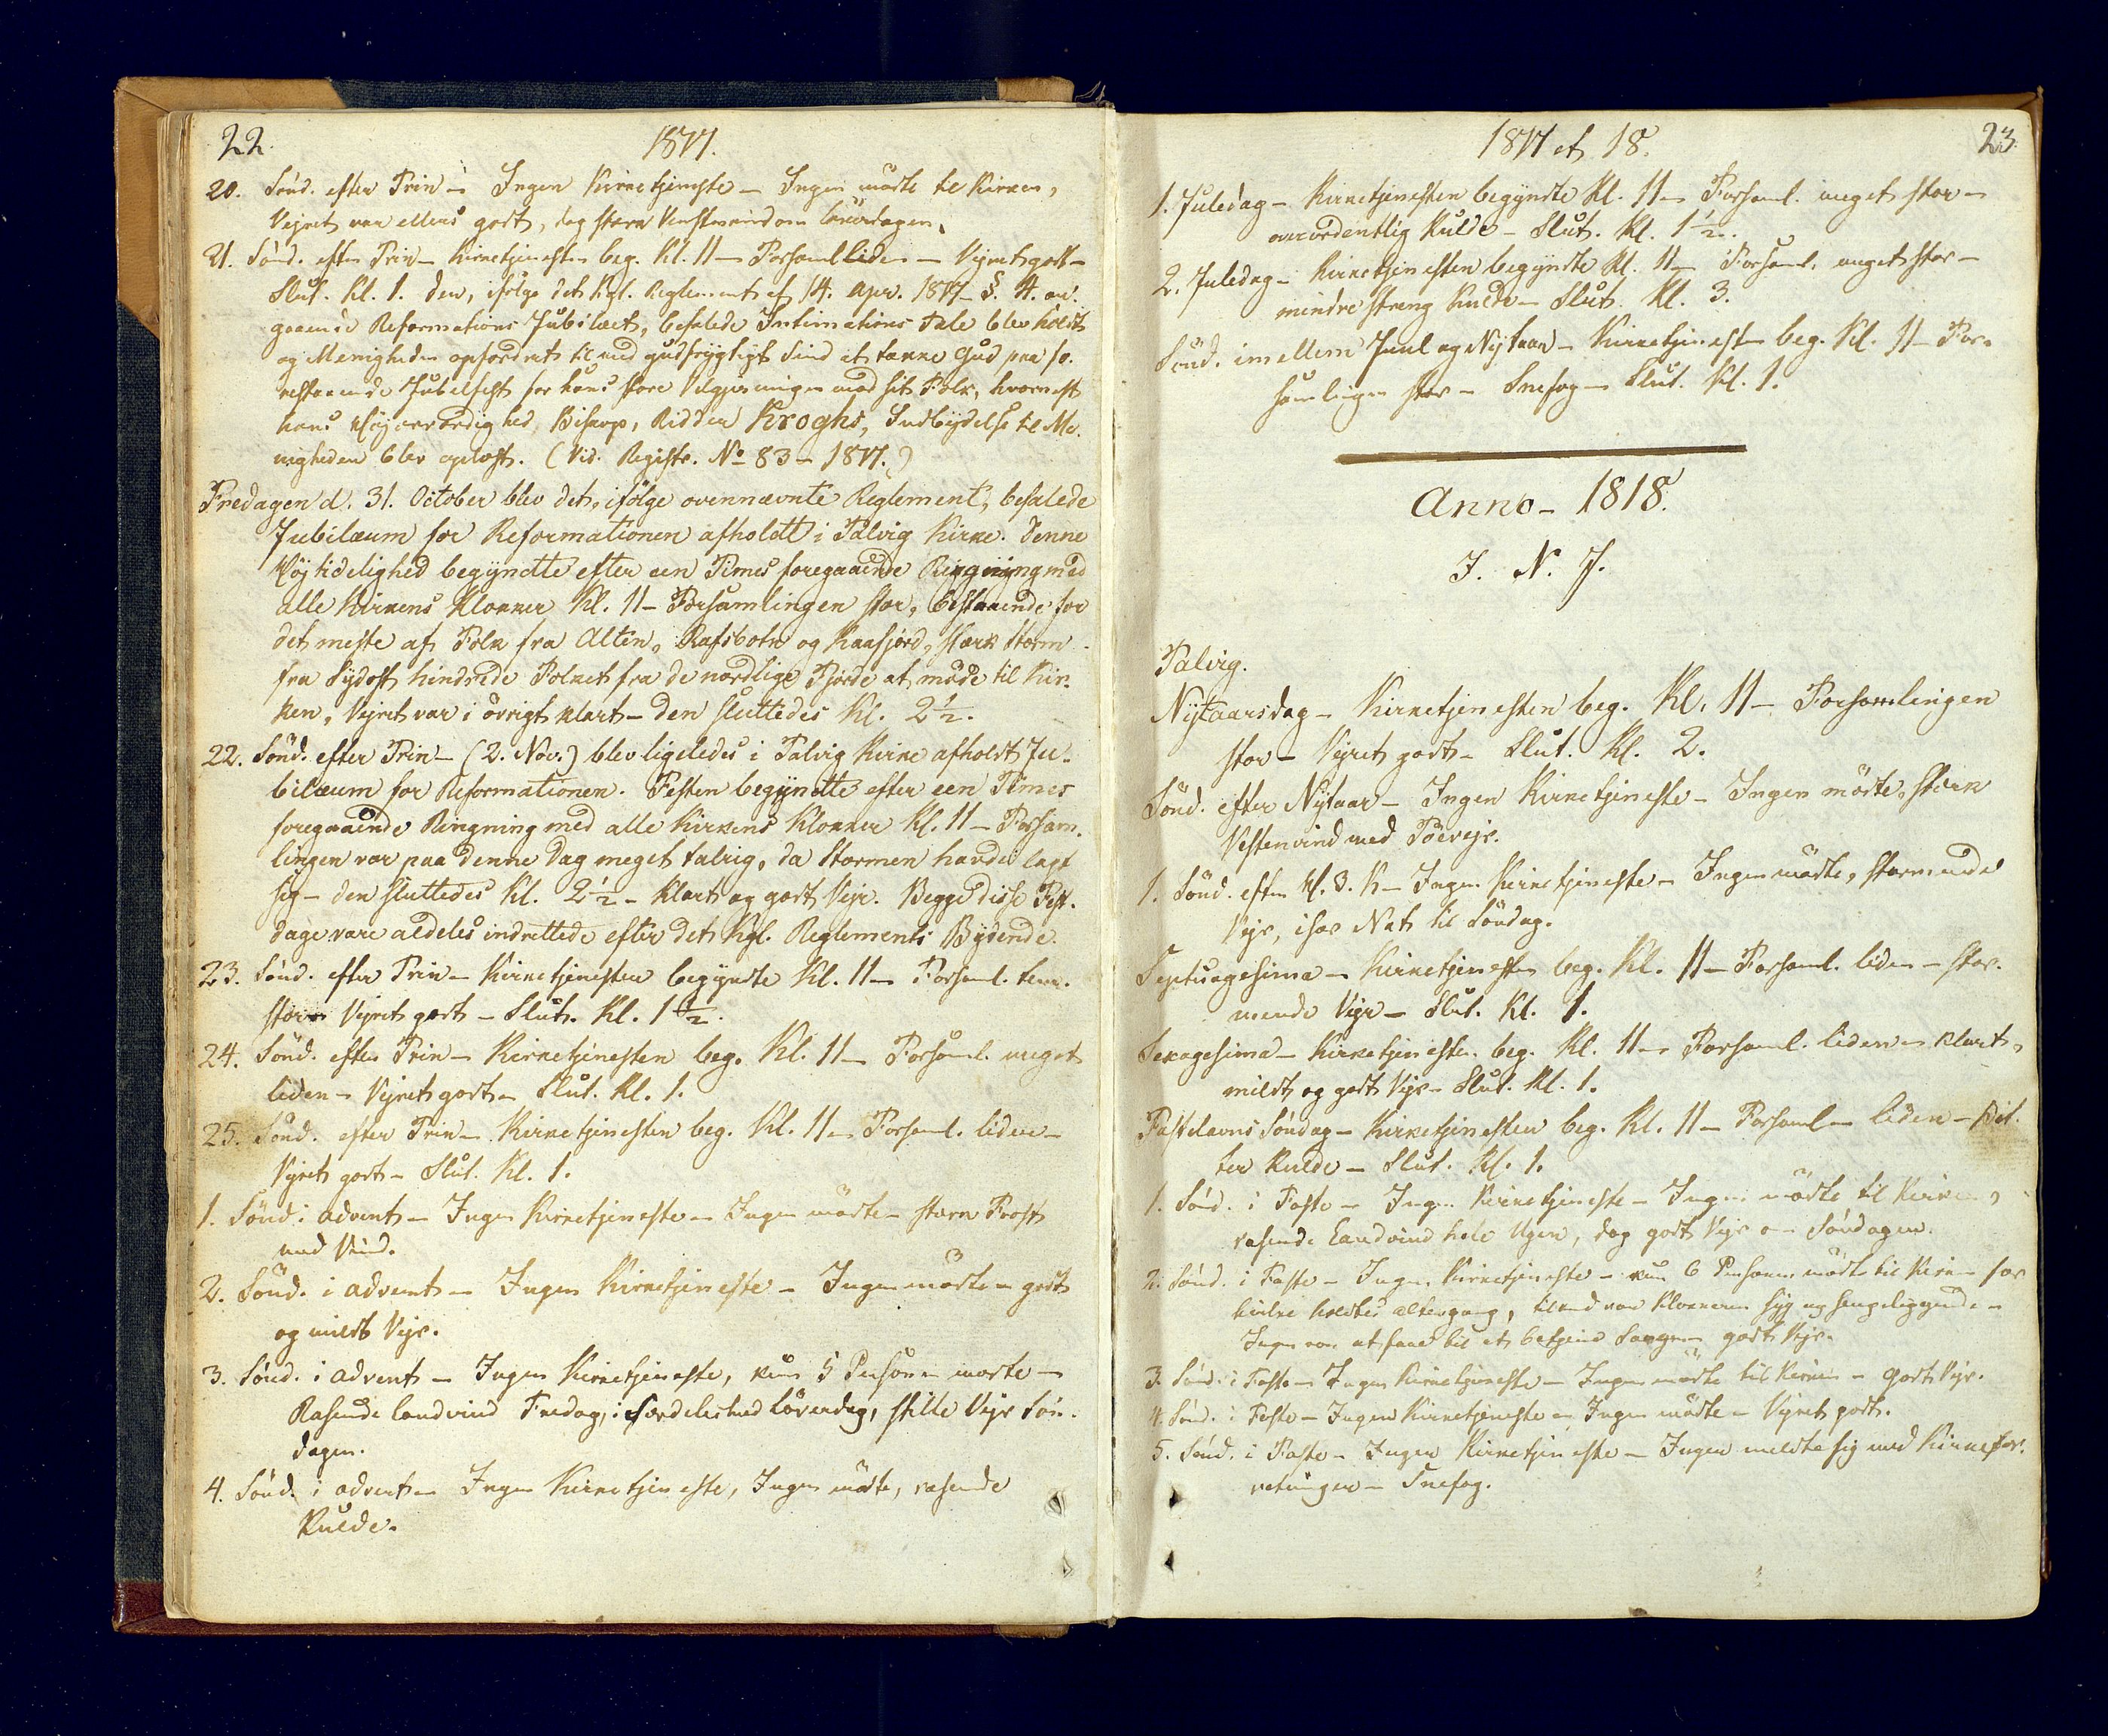 22.
1817.
20. Sönd. efter Trin - Ingen Kirketjeneste - Ingen mödte til Kirken,
Vejret var ellers godt, dog stærk Vestenvind om Löverdagen.
21. Sönd. efter Trin - Kirketjenesten beg. Kl. 11 - Forsaml liden - Vejret godt -
Slut. Kl. 1. Den, ifölge det Kgl. Reglement af 14. Apr. 1817 - §. 4. an-
gaaende Reformations Jubilæet, befalede Intimations Tale blev holdt
og Menigheden opfordret til med gudfrygtigt Sind at takke Gud paa fo-
restaaende Jubelfest for hans store Velgjerninger mod sit Folk, hvornæst
hans Höjærværdighed, Biskop, Ridder Kroghs, Indbydelse til Me-
nigheden blev oplæst. (Vid. Registr. No 83 - 1817.)
Fredagen d. 31. October blev det, ifölge ovennævnte Reglement, befalede
Jubilæum for Reformationen afholdt i Talvig Kirke. Denne
Höjtidelighed begyndte efter een Times foregaaende Ringning med
alle Kirkens Klokker Kl. 11 - Forsamlingen stor, bestaaende for
det meste af Folk fra Alten, Rafsbotn og Kaafjord, stærk Storm
fra Sydost hindrede Folket fra de nordlige Fjorde at möde til Kir-
ken, Vejret var i övrigt klart - den sluttedes Kl. 2 1/2.
22. Sönd. efter Trin - (2. Nov.) blev ligeledes i Talvig Kirke afholdt Ju-
bilæum for Reformationen. Festen begyndte efter een Times
foregaaende Ringning med alle Kirkens Klokker Kl. 11 - Forsam-
lingen var paa denne Dag meget talrig, da Stormen havde lagt
sig - den sluttedes Kl. 2 1/2 - klart og godt Vejr. Begge disse Fest-
dage vare aldeles indrettede efter det Kgl. Reglements Bydende.
23. Sönd. efter Trin - Kirketjenesten begyndte Kl. 11 - Forsaml. tem.
stor - Vejret godt - Slut. Kl. 1 1/2.
24. Sönd. efter Trin - Kirketjenesten beg. Kl. 11 - Forsaml. meget
liden - Vejret godt - Slut. Kl. 1.
25. Sönd. efter Trin - Kirketjenesten beg. Kl. 11 - Forsaml. liden -
Vejret godt - Slut. Kl. 1.
1. Sönd. i Advent - Ingen Kirketjeneste - Ingen mödte - stærk Frost
med Vind.
2. Sönd. i Advent - Ingen Kirketjeneste - Ingen mödte - godt
og mildt Vejr.
3. Sönd. i Advent - Ingen Kirketjeneste, kun 5 Personer mödte -
Rasende Landvind Fredag, i Særdeleshed Löverdag, stille Vejr Sön-
dagen.
4. Sönd. i Advent - Ingen Kirketjeneste, Ingen mödte, rasende
Kulde.
1817 et 18.
23.
1. Juledag - Kirketjenesten begyndte Kl. 11 - Forsaml. meget stor -
overordentlig Kulde - Slut. Kl. 1 1/2.
2. Juledag - Kirketjenesten begyndte Kl. 11 - Forsaml. meget stor -
mindre streng Kulde - Slut. Kl. 3.
Sönd. imellem Juul og Nytaar - Kirketjenesten beg. Kl. 11 - For-
samlingen stor - Snefog - Slut. Kl. 1.
Anno - 1818.
I. N. J.
Talvig.
Nytaarsdag - Kirketjenesten beg. Kl. 11 - Forsamlingen
stor - Vejret godt - Slut. Kl. 2.
Sönd. efter Nytaar - Ingen Kirketjeneste - Ingen mödte, stærk
Vestenvind med Töevejr.
1. Sönd. efter H. 3. K - Ingen Kirketjeneste - Ingen mödte, stormende
Vejr, især Nat til Söndag.
Septuagesima - Kirketjenesten beg. Kl. 11 - Forsaml. liden - stor-
mende Vejr - Slut. Kl. 1.
Sexagesima - Kirketjenesten beg. Kl. 11 - Forsaml. liden - klart,
mildt og godt Vejr - Slut. Kl. 1.
Fastelavns Söndag - Kirketjenesten beg. Kl. 11 - Forsaml - liden - bit-
ter Kulde - Slut. Kl. 1.
1. Sönd. i Faste - Ingen Kirketjeneste - Ingen mödte til Kirken,
rasende Landvind hele Ugen, dog godt Vejr om Söndagen.
2. Sönd. i Faste - Ingen Kirketjeneste - kun 6 Personer mödte til Kirken for
hvilke holdtes altergang, tilmed var Klokkeren syg og sengeliggende -
Ingen var at faae til at betjene Sangen - godt Vejr.
3. Sönd. i Faste - Ingen Kirketjeneste - Ingen mödte til Kirken - godt Vejr.
4. Sönd. i Faste - Ingen Kirketjeneste - Ingen mödte - Vejret godt.
5. Sönd. i Faste - Ingen Kirketjeneste - Ingen meldte sig med Kirkefor-
retninger - Snefog.